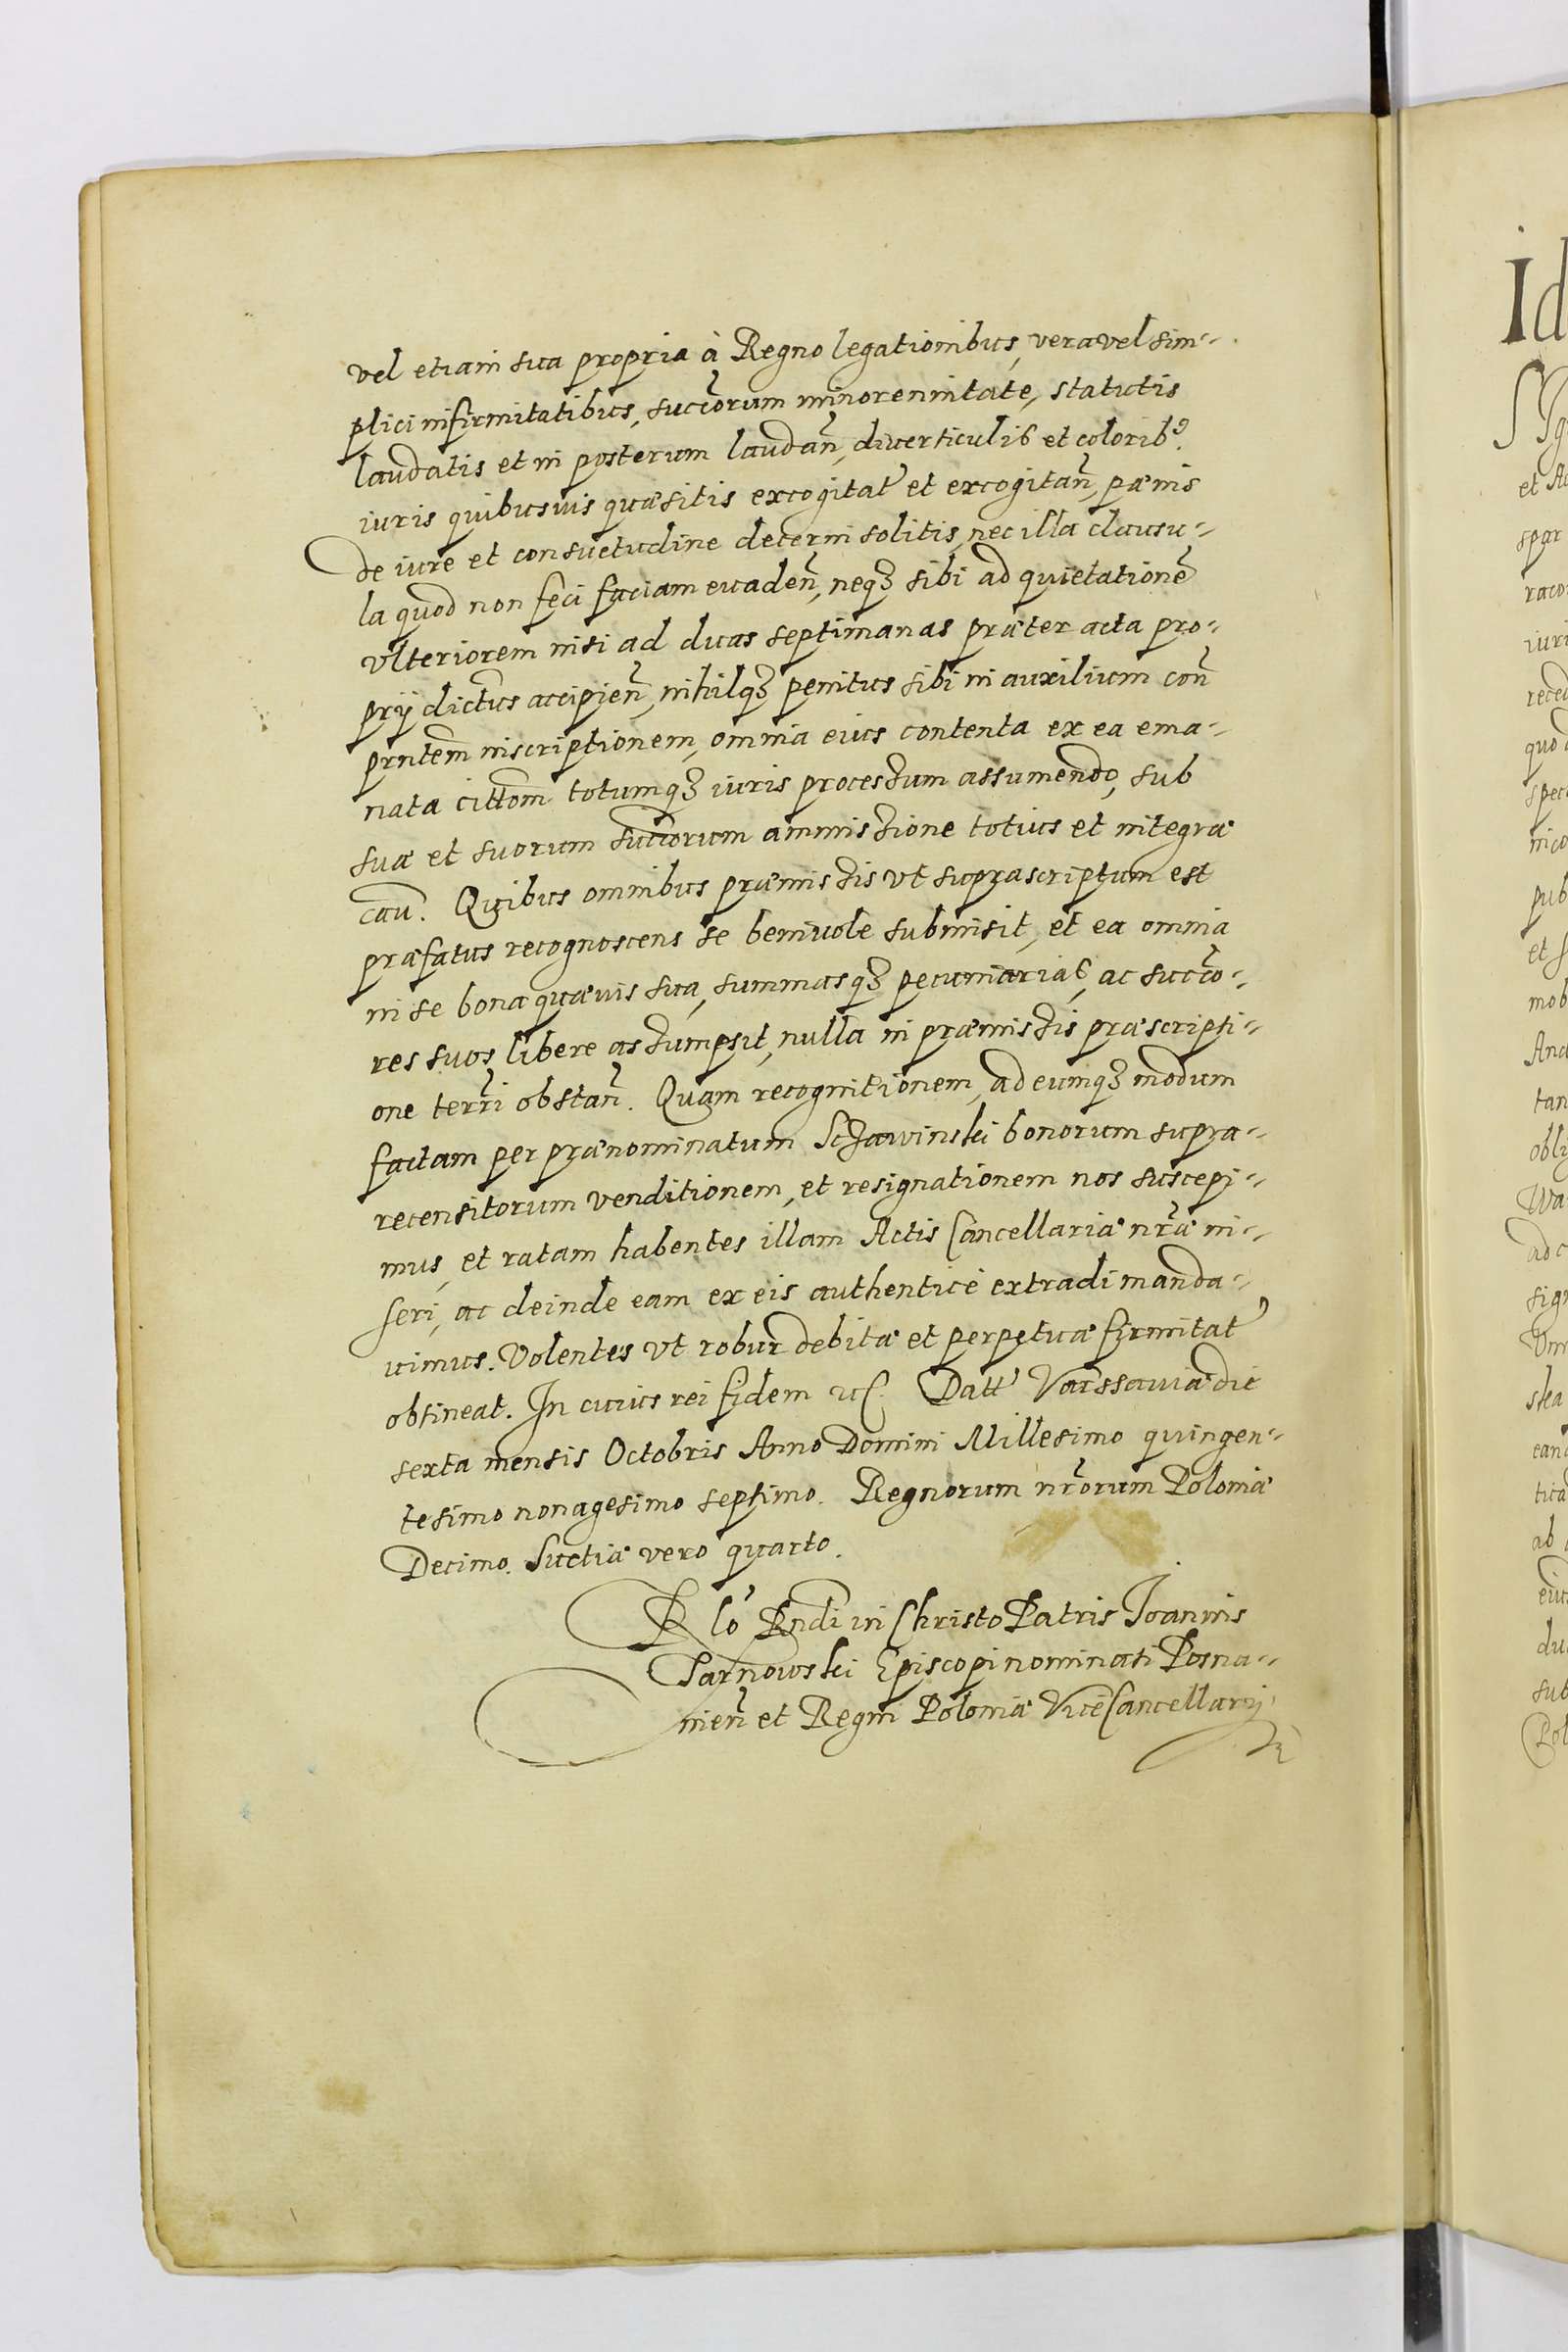 vel etiam sua propria à Regno legationibus, vera vel sim-
plici infirmitatibus, succ̃orum minorennitate, statutis
laudatis et in posterum laudañ, diverticulis et coloribꝰ
iuris quibusuis quæsitis excogitat̃ et excogitañ, pænis
de iure et consuetudine decerni solitis, nec illa clausu-
la quod non feci faciam euadeñ, neqꝫ sibi ad quietationẽ
vlteriorem nisi ad duas septimanas præter acta pro-
prij dictus accipieñ, nihilqꝫ penitus sibi in auxilium coñ
prñtem inscriptionem, omnia eius contenta ex ea ema-
nata citt̃om totumqꝫ iuris processum assumendo, sub
suæ et suorum succ̃orum ammissione totius et integræ
cau̇. Quibus omnibus præmissis vt suprascriptum est
præfatus recognoscens se beniuole submisit, et ea omnia
in se bona quæuis sua, summasqꝫ pecuniarias, ac succ̃o-
res suos libere assumpsit, nulla in præmissis præscripti-
one terr̃i obstañ. Quam recognitionem, ad eumqꝫ modum
factam per prænominatum Sczawinski bonorum supra-
recensitorum venditionem, et resignationem nos suscepi-
mus, et ratam habentes illam Actis Cancellariæ nr̃æ in-
seri, ac deinde eam ex eis authenticè extradi manda-
uimus. Volentes vt robur debitæ et perpetuæ firmitat̃
obtineat. In cuius rei fidem etc. Datt̃ Varssauiæ die
sexta mensis Octobris Anno Domini Millesimo quingen-
tesimo nonagesimo septimo. Regnorum nr̃orum Poloniæ
Decimo. Suetiæ vero quarto.
R̃lo Rndi in Christo Patris Joannis
Tarnowski Episcopi nominati Posna-
nieñ et Regni Poloniæ ViceCancellarij